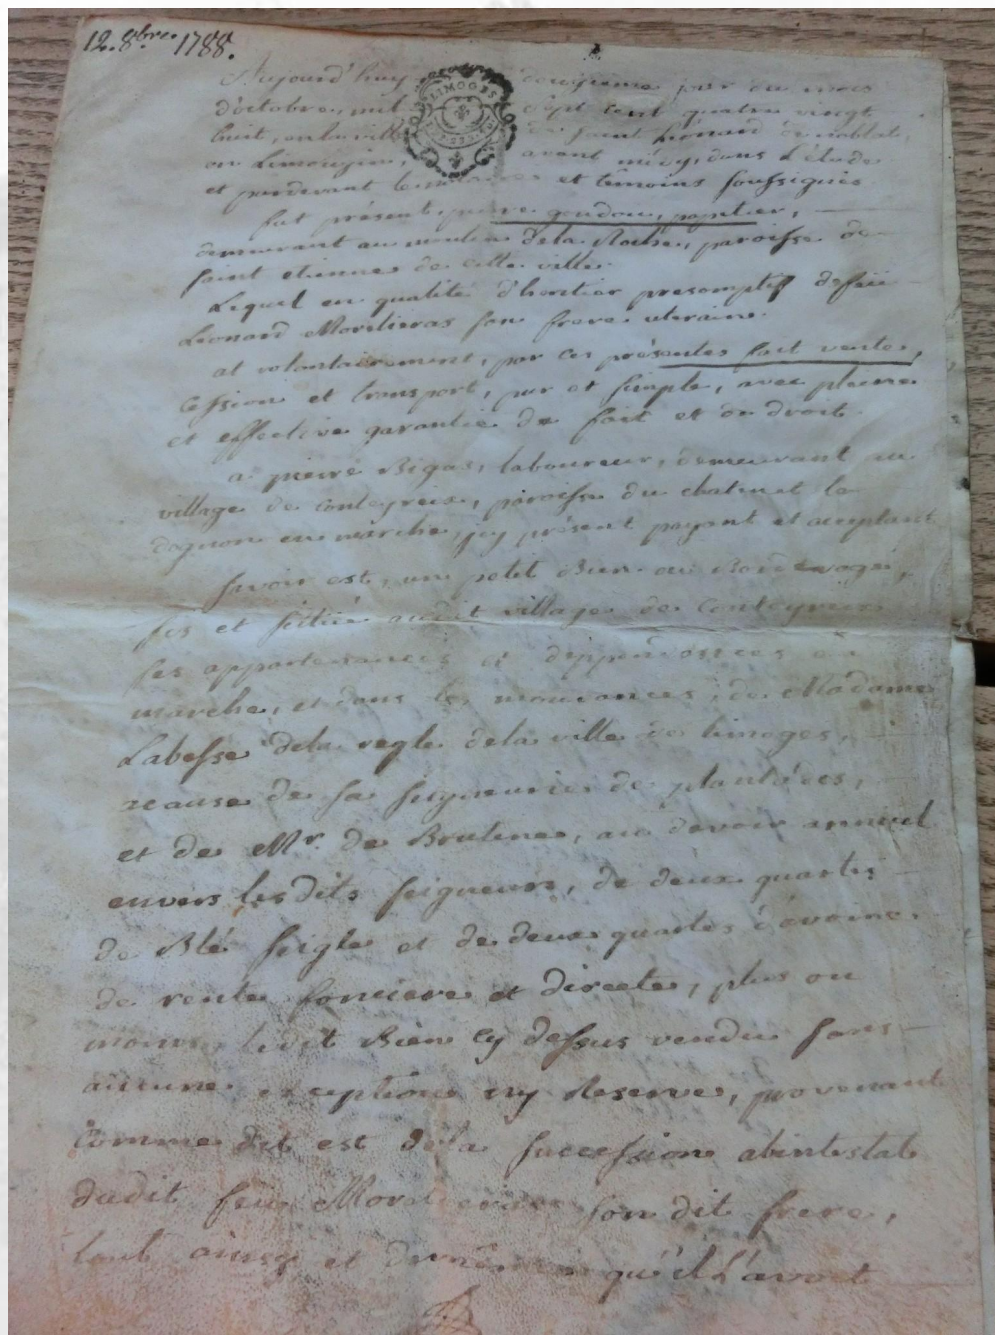 12. 8bre. 1788.
LIMOGES
Aujourd'huy douzieme jour du mois
d'octobre, mil sept cent quatre vingt
huit, en la ville de saint Leonard de noblat,
en Limouzin, avant midy, dans L'étude
et pardevant le notaire et témoins soussignés
fut présent, pierre goudou, papetier,
demeurant au moulin dela Roche, paroisse de
saint etienne de cette ville.
Lequel en qualité d'heritier presomptif defeu
Leonard Morelieras son frere uterain.
at volontairement, par ces présentes fait vente,
cession et transport, pur et simple, avec pleine
et effective garantie de fait et de droit.
a pierre Bigas, laboureur, demeurant au
village de , paroisse du chatenet le
dognon en marche, jcy présent payant et acceptant
savoir est, un petit Bien ou Borderage,
sis et situé audit village de
ses appartenances et deppendances en
marche, et dans les mouvances, de Madame
Labesse dela regle dela ville de limoges,
acause de sa seigneurie de ,
et de Mr. de Brutine, au devoir annuel
envers lesdits seigneurs, de deux quartes
de Blé seigle et de deux quartes d'avoine
de rente fonciere et directe, plus ou
moins, ledit Bien cy dessus vendu sans
aucune exception ny Reserve, provenant
comme dit est dela succession abintestat
dudit feu son dit frere,
tout ainsy et qu'il L'avoit